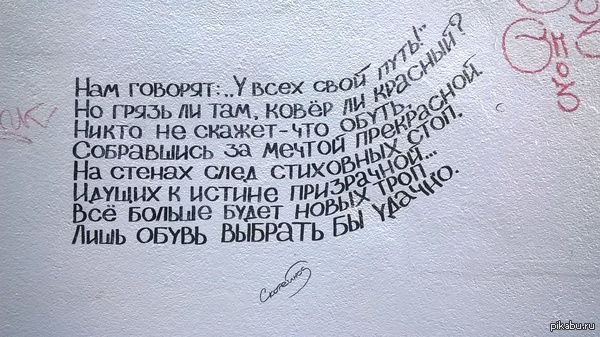 Нам говорят: „У всех свой путь!"
Но грязь ли там, ковёр ли красный?
Никто не скажет - что обуть,
Собравшись за мечтой прекрасной.
На стенах след стиховных стоп.
Идущих к истине призрачной...
Всё больше будет новых троп
Лишь обувь выбрать бы удачно.
pikabu.ru